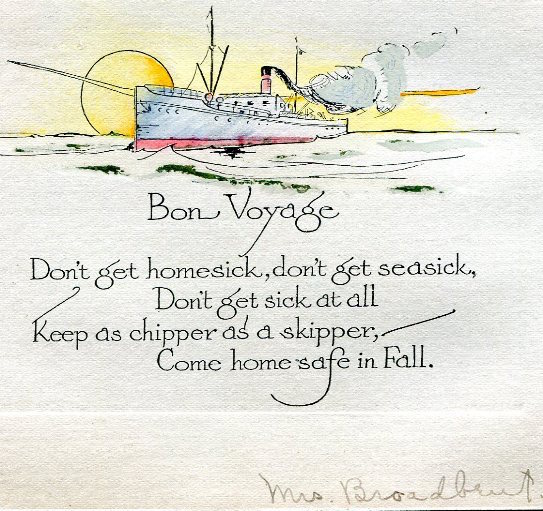 Bon Voyage
Don't get homesick, don't get seasick,
Don't get sick at all
Keep as chipper as a skipper,
Come home safe in Fall.
Mrs. Broadbent.